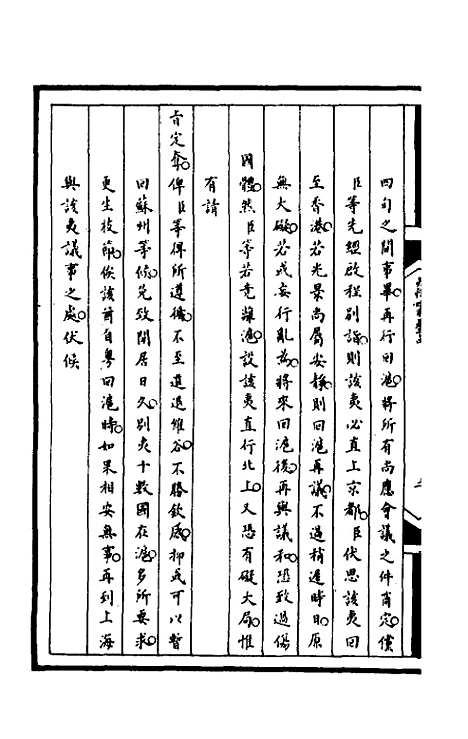 四旬之間事畢再行回滬。將所有尚應會議之件商定。償
臣等先經啟程別許。則該夷必直上京都。臣伏思該夷回
至香港。若光景尚屬安靜。則回滬再議。不過稍遲時日。原
無大礙。若或妄行亂為。將來回滬後。再與議和。恐致過傷
國體。然臣等若竟離滬。設該夷直行北上。又恐有礙大局。惟
有請
旨定奪。俾臣等得所遵循。不至進退維谷。不勝欽感。抑或可以暫
回蘇州等候。免致閒居日久。別夷十數國在滬。多所要求。
更生枝節。俟該酋自粵回滬時。如果相安無事。再到上海
與該夷議事之處。伏候